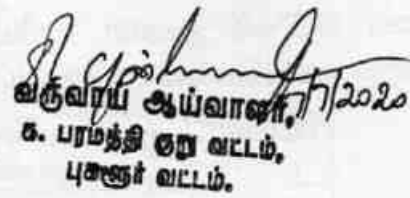 7/7/2020
வருவாய் ஆய்வாளர்,
க. பரமத்தி குறு வட்டம்,
புகளூர் வட்டம்.